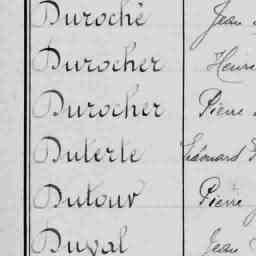 Duroché Jean
Durocher Henri
Durocher Pierre
Duterte Edouard
Dutour Pierre
Duval Jean